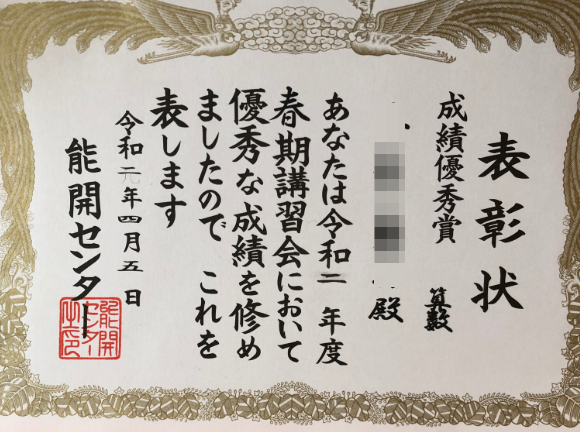 表彰状
成績優秀賞 算数
殿
あなたは令和二年度
春期講習会において
優秀な成績を修め
ましたので これを
表します
令和二年四月五日
能開センター